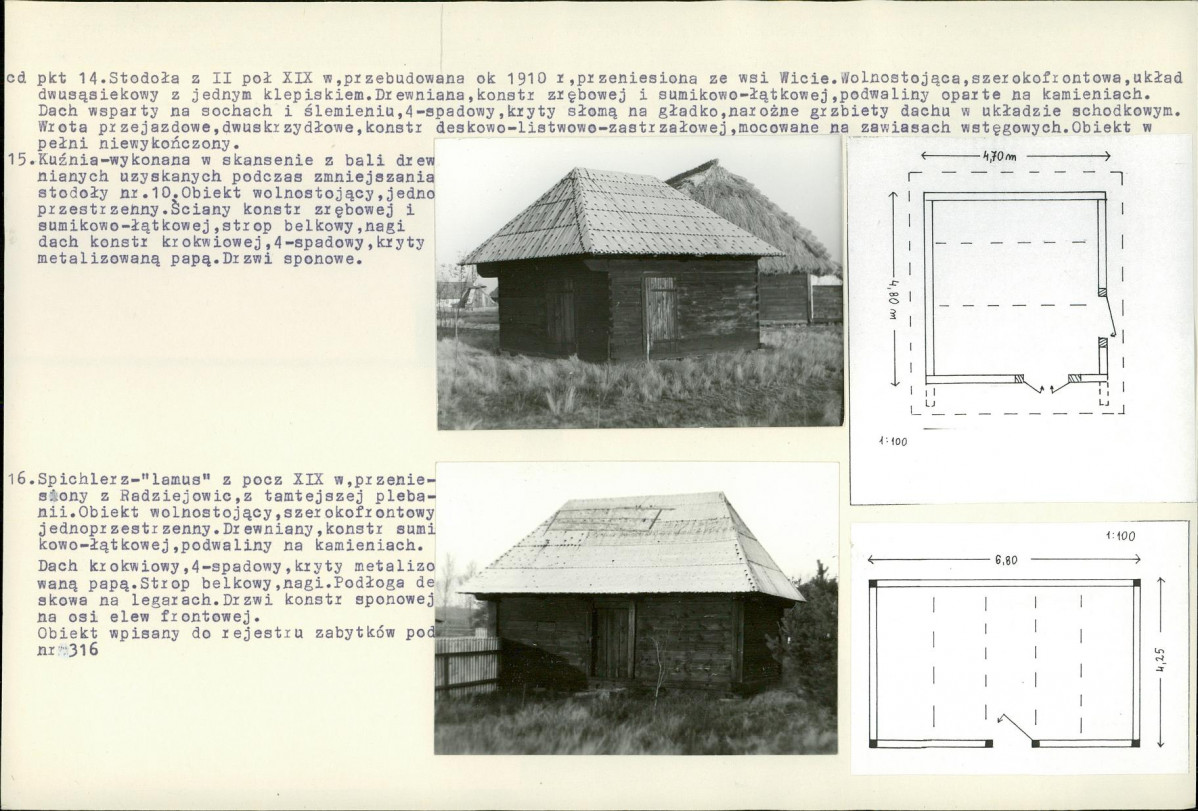 cd pkt 14.Stodoła z II poł XIX w,przebudowana ok 1910 r,przeniesiona ze wsi Wicie.Wolnostojąca,szerokofrontowa,układ
dwusąsiekowy z jednym klepiskiem.Drewniana,konstr zrębowej i sumikowo-łątkowej,podwaliny oparte na kamieniach.
Dach wsparty na sochach i ślemieniu,4-spadowy,kryty słomą na gładko,narożne grzbiety dachu w układzie schodkowym.
Wrota przejazdowe,dwuskrzydłowe,konstr deskowo-listwowo-zastrzałowej,mocowane na zawiasach wstęgowych.Obiekt w
pełni niewykończony.
15.Kuźnia-wykonana w skansenie z bali drew
nianych uzyskanych podczas zmniejszania
stodoły nr.10.Obiekt wolnostojący,jedno
przestrzenny.Ściany konstr zrębowej i
sumikowo-łątkowej,strop belkowy,nagi
dach konstr krokwiowej,4-spadowy,kryty
metalizowaną papą.Drzwi sponowe.
4,70 m
4,80 m
1:100
16.Spichlerz-"lamus" z pocz XIX w,przenie-
siony z Radziejowic,z tamtejszej pleba-
nii.Obiekt wolnostojący,szerokofrontowy
jednoprzestrzenny.Drewniany,konstr sumi
kowo-łątkowej,podwaliny na kamieniach.
Dach krokwiowy,4-spadowy,kryty metalizo
waną papą.Strop belkowy,nagi.Podłoga de
skowa na legarach.Drzwi konstr sponowej
na osi elew frontowej.
Obiekt wpisany do rejestru zabytków pod
nr 316
1:100
6,80
4,25